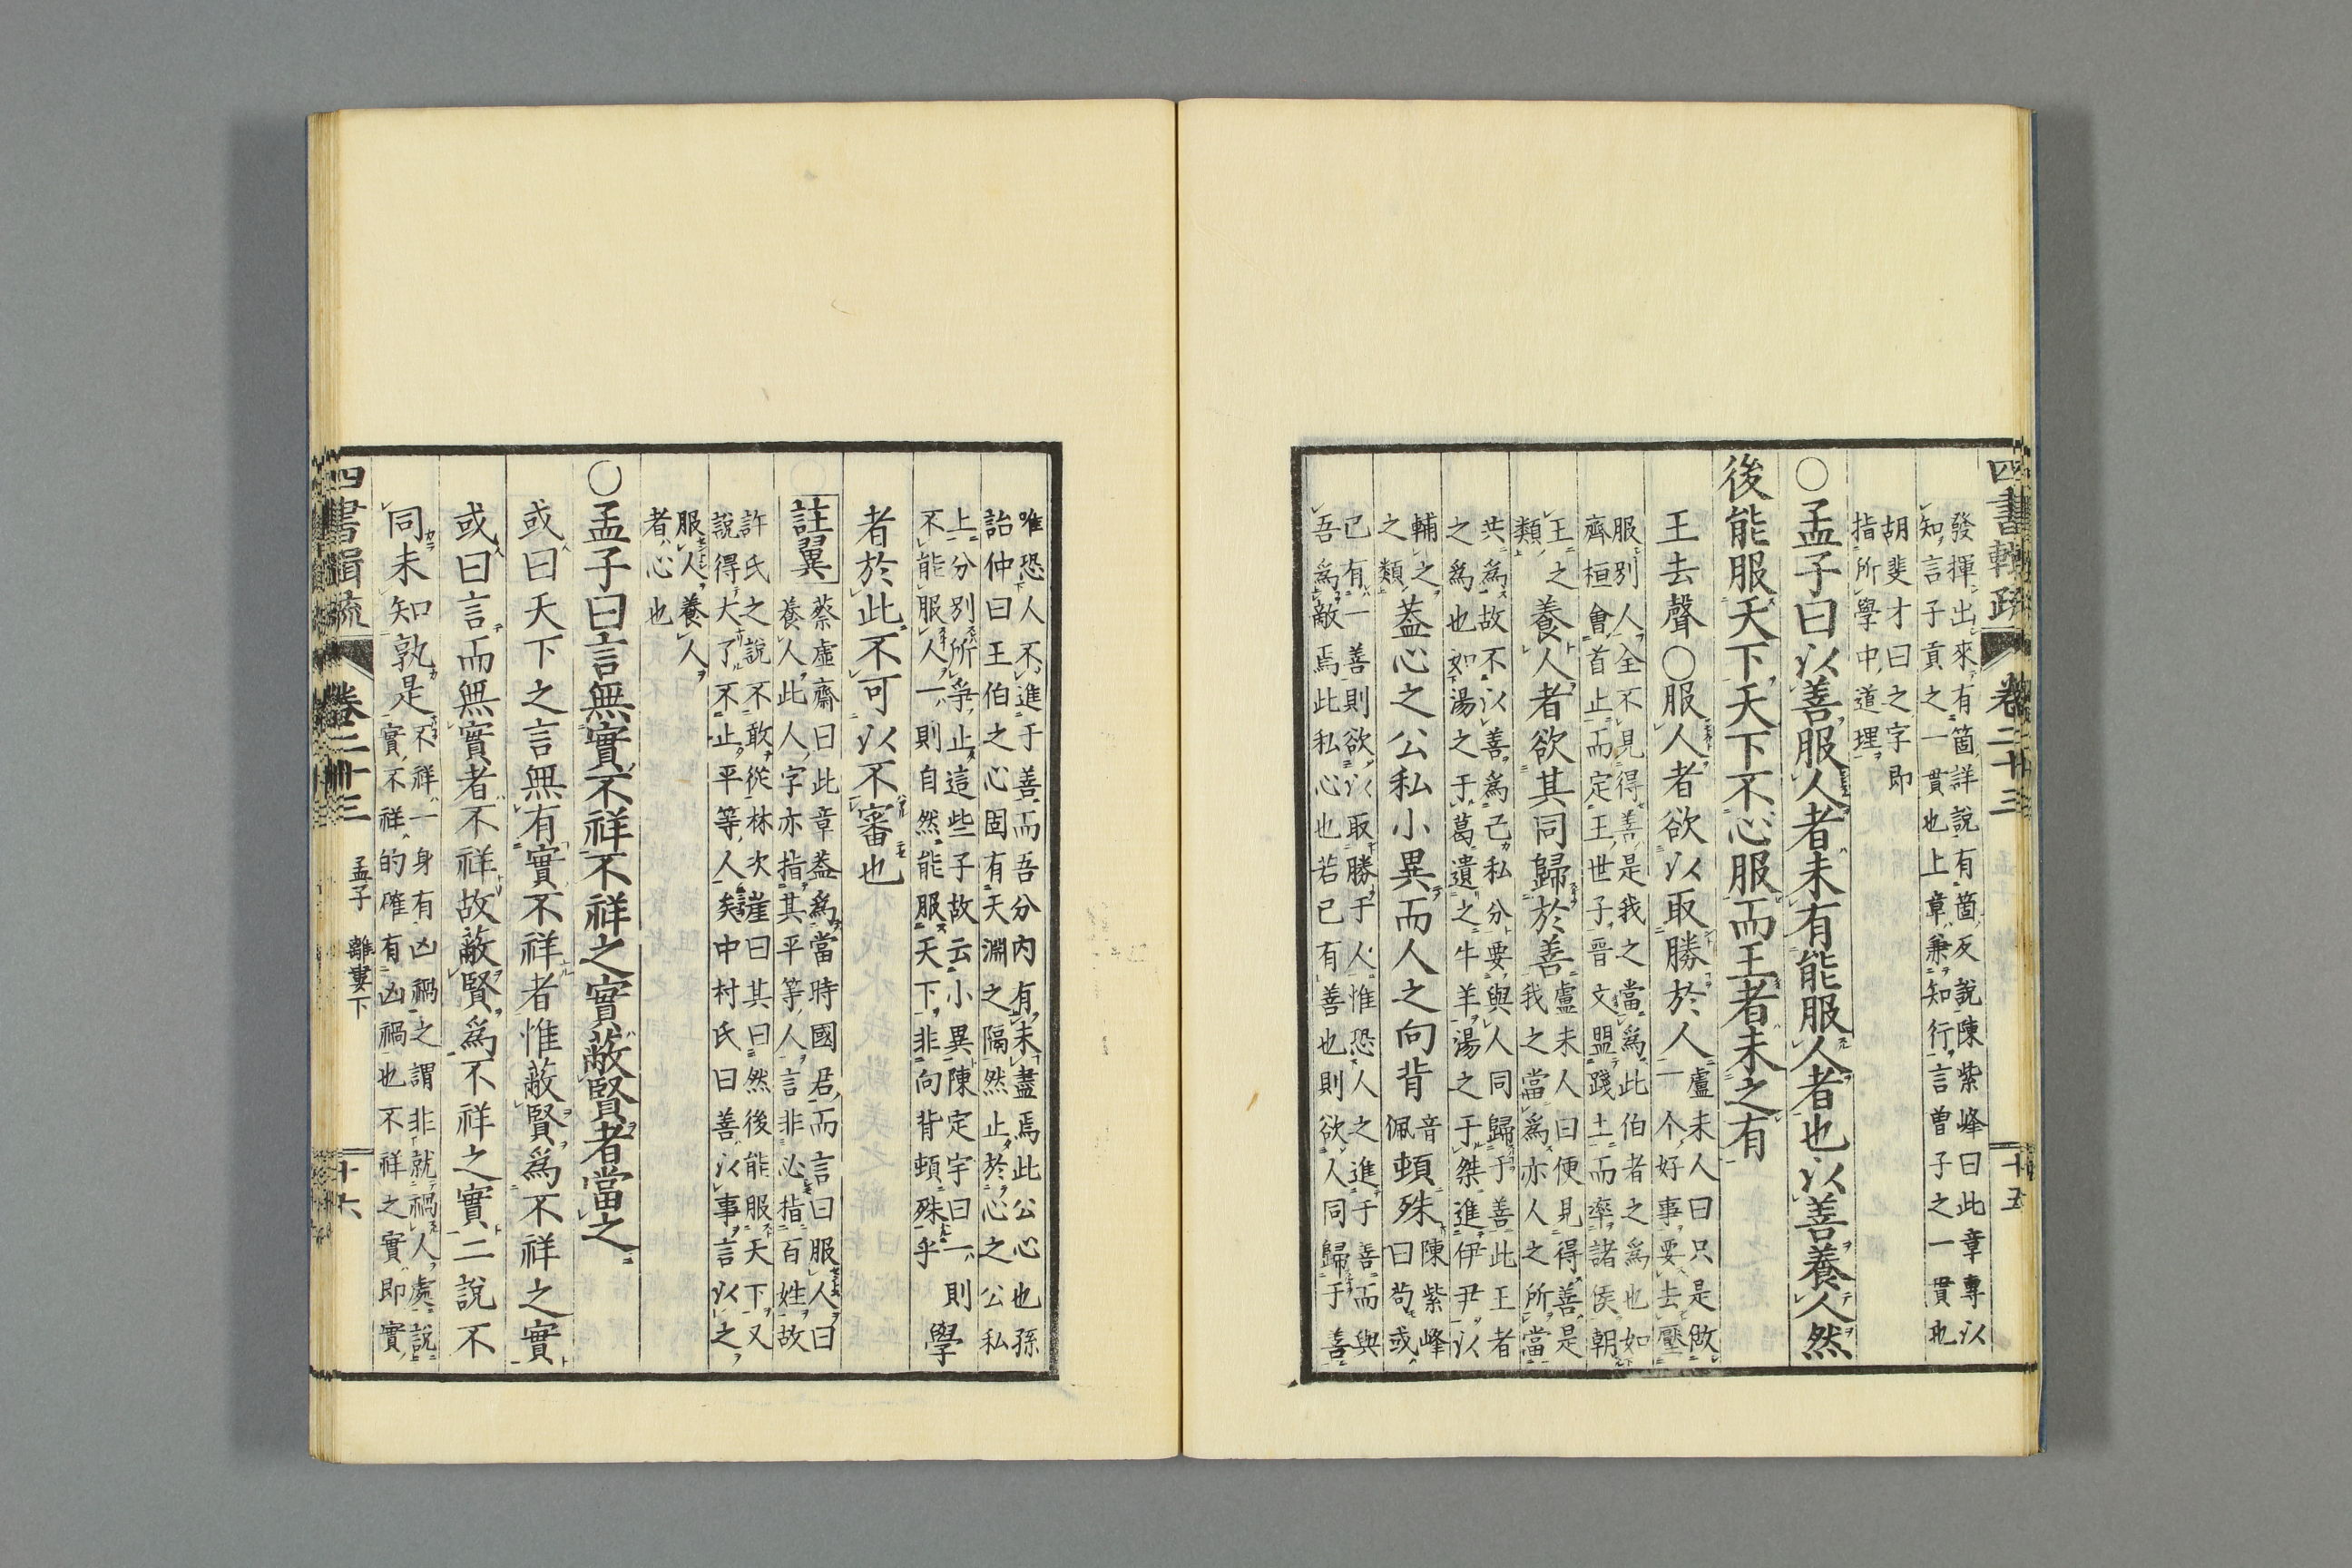 四書輯疏
卷二十三
十五
發揮出來有箇詳說有箇反說陳紫峰曰此章專以
知言子貢之一貫也上章兼知行言曾子之一貫也
胡斐才曰之字即
指所學中道理
○孟子曰以善服人者未有能服人者也以善養人然
後能服天下天下不心服而王者未之有
王去聲○服人者欲以取勝於人
盧未人曰只是做
一个好事要去壓
服別人全不見得善是我之當爲此伯者之爲也如
齊桓會首止而定王世子晉文盟踐土而率諸侯朝
王之
類
養人者欲其同歸於善
盧未人曰便見得善是
我之當爲亦人之所當
共爲故不以善爲己私分要與人同歸于善此王者
之爲也如湯之于葛遺之牛羊湯之于桀進伊尹以
輔之
之類
蓋心之公私小異而人之向背頓殊
音
佩
陳紫峰
曰苟或
己有一善則欲以取勝于人惟恐人之進于善而與
吾爲敵焉此私心也若己有善也則欲人同歸于善
唯恐人不進于善而吾分內有未盡焉此公心也孫
詒仲曰王伯之心固有天淵之隔然止於心之公私
上分別所爭止這些子故云小異陳定宇曰一則
不能服人一則自然能服天下非向背頓殊乎
學
者於此不可以不審也
註翼
蔡虛齋曰此章蓋爲當時國君而言曰服人曰
養人此人字亦指其平等人言非必指百姓故
許氏之說不敢從林次崖曰其曰然後能服天下又
說得大了不止平等人矣中村氏曰善以事言以之
服人養人
者心也
○孟子曰言無實不祥不祥之實蔽賢者當之
或曰天下之言無有實不祥者惟蔽賢爲不祥之實
或曰言而無實者不祥故蔽賢爲不祥之實二說不
同未知孰是
不祥一身有凶禍之謂非就禍人處說
實不祥的確有凶禍也不祥之實即實
四書輯疏
卷二十三
孟子　離婁下
十六